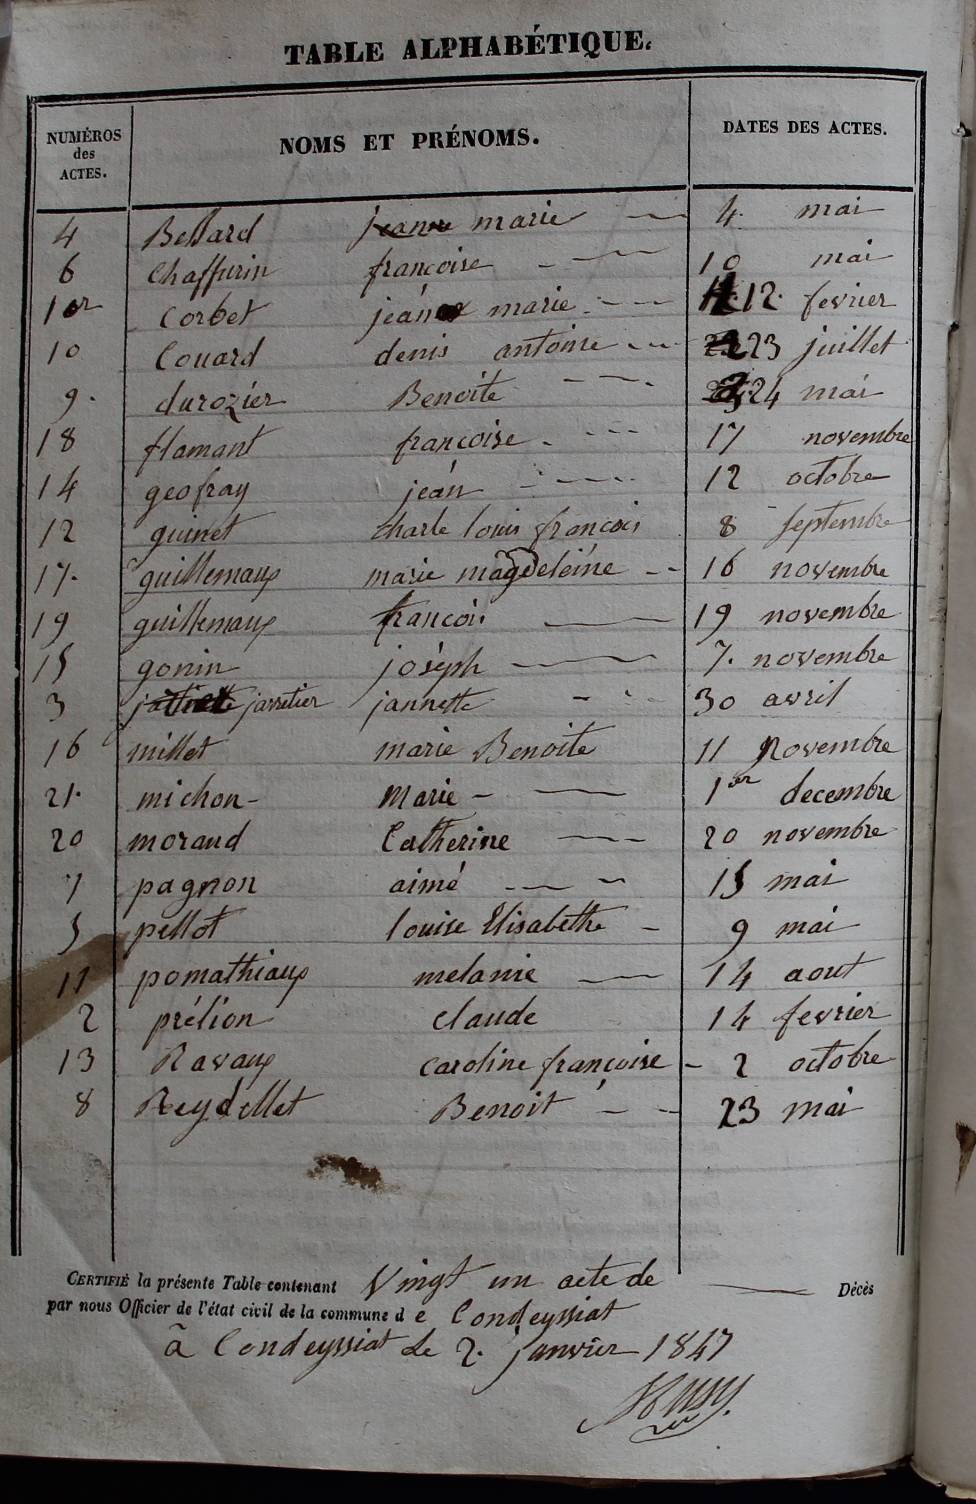 TABLE ALPHABÉTIQUE.
NUMÉROS des ACTES. NOMS ET PRÉNOMS. DATES DES ACTES.
4 Bellard jeanne marie 4. mai
6 Chaffurin francoise 10 mai
1er Corbet jean marie 12. fevrier
10 Couard denis antoine 23 juillet
9. durozier Benoite 24 mai
18 flamant francoise 17 novembre
14 geofray jean 12 octobre
12 guinet charle louis francois 8 septembre
17. guillemaux marie magdeleine 16 novembre
19 guillemaux francois 19 novembre
15 gonin joseph 7. novembre
3 jarretier jannette 30 avril
16 millet marie Benoite 11 Novembre
21. michon Marie 1er decembre
20 moraud Catherine 20 novembre
7 pagnon aimé 15 mai
5 pellot louise Elisabethe 9 mai
11 pomathiaux melanie 14 aout
2 prélion claude 14 fevrier
13 Ravaux caroline françoise 2 octobre
8 Reydellet Benoit 23 mai
CERTIFIÉ la présente Table contenant Vingt un acte de Décès
par nous Officier de l'état civil de la commune d e Condeyssiat
à Condeyssiat Le 2. janvier 1847